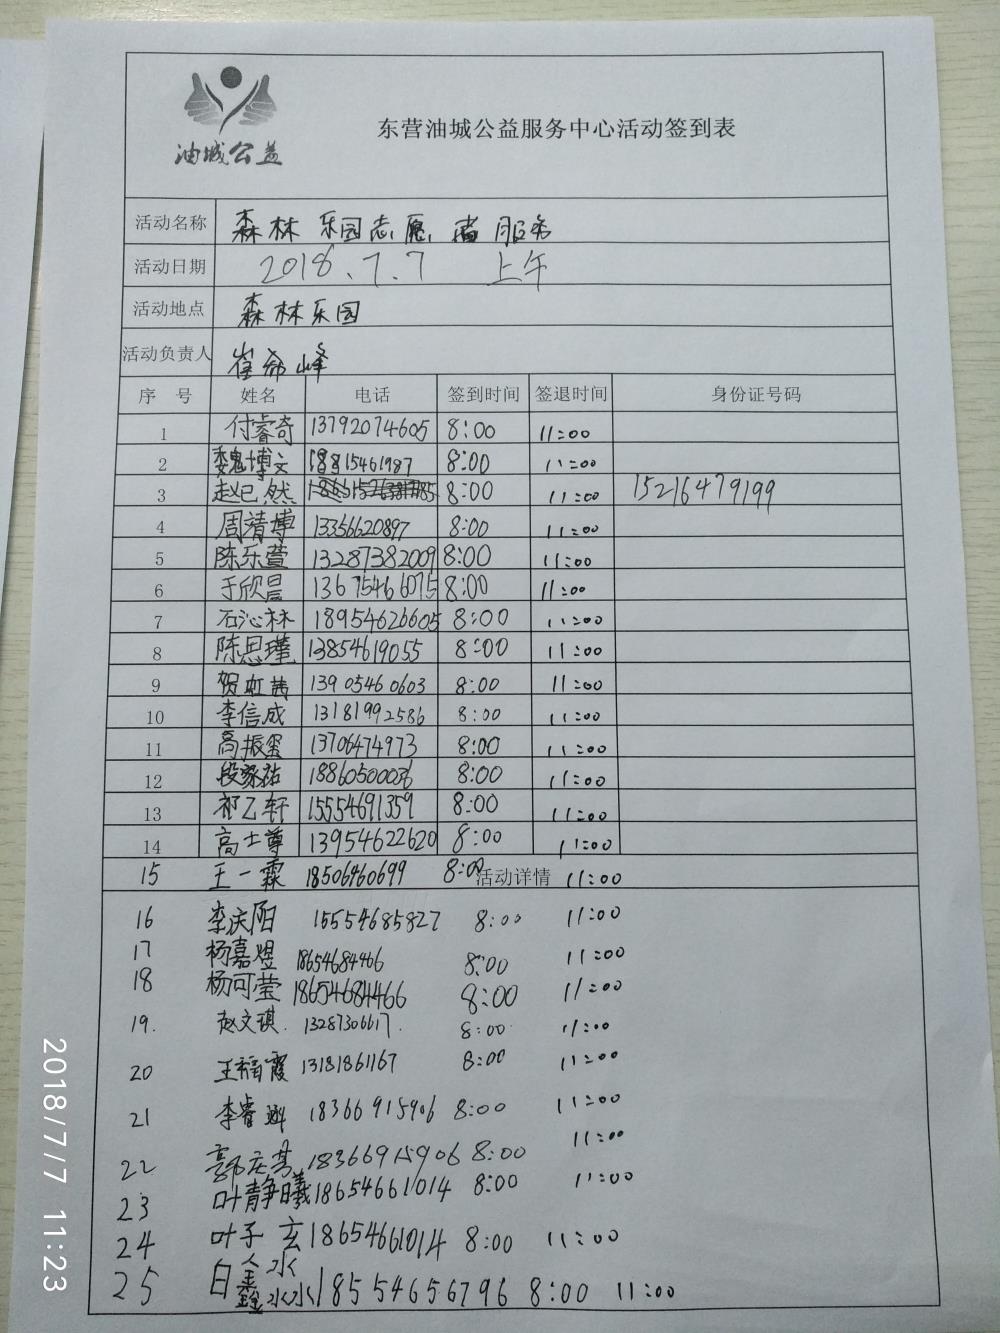 油城公益
东营油城公益服务中心活动签到表
活动名称 森林乐园志愿者服务
活动日期 2018.7.7 上午
活动地点 森林乐园
活动负责人 崔希峰
序号 姓名 电话 签到时间 签退时间 身份证号码
1 付睿奇 13792074605 8:00 11:00
2 魏博文 18815461987 8:00 11:00
3 赵已然 8:00 11:00 15216479199
4 周靖博 13356620897 8:00 11:00
5 陈乐萱 13287382009 8:00 11:00
6 于欣晨 13675466075 8:00 11:00
7 石沁林 18954626605 8:00 11:00
8 陈思瑾 13854619055 8:00 11:00
9 贺虹茜 13905460603 8:00 11:00
10 李信成 13181992586 8:00 11:00
11 高振 13706474973 8:00 11:00
12 段 18860500036 8:00 11:00
13 祁乙轩 15554691359 8:00 11:00
14 高士尊 13954622620 8:00 11:00
15 王一霖 18506460699 8:00 活动详情 11:00
16 李庆阳 15554685827 8:00 11:00
17 杨嘉煜 18654684466 8:00 11:00
18 杨可莹 18654684466 8:00 11:00
19. 赵文琪. 13287306617. 8:00 11:00
20 王 霞 13181861167 8:00 11:00
21 李睿 18366915906 8:00 11:00
22 郭 18366915906 8:00 11:00
23 叶静曦 18654661014 8:00 11:00
24 叶子玄 18654661014 8:00 11:00
25 白鑫淼 18554656796 8:00 11:00
2018/7/7 11:23